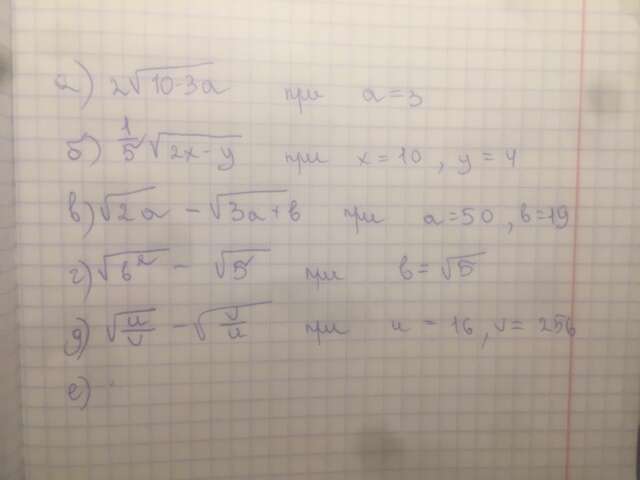 а) 2√(10-3a) при a=3
б) 1/5 √(2x-y) при x=10, y=4
в) √2a - √(3a+b) при a=50, b=19
г) √(b²) - √5 при b=√5
д) √(u/v) - √(v/u) при u=16, v=256
е)